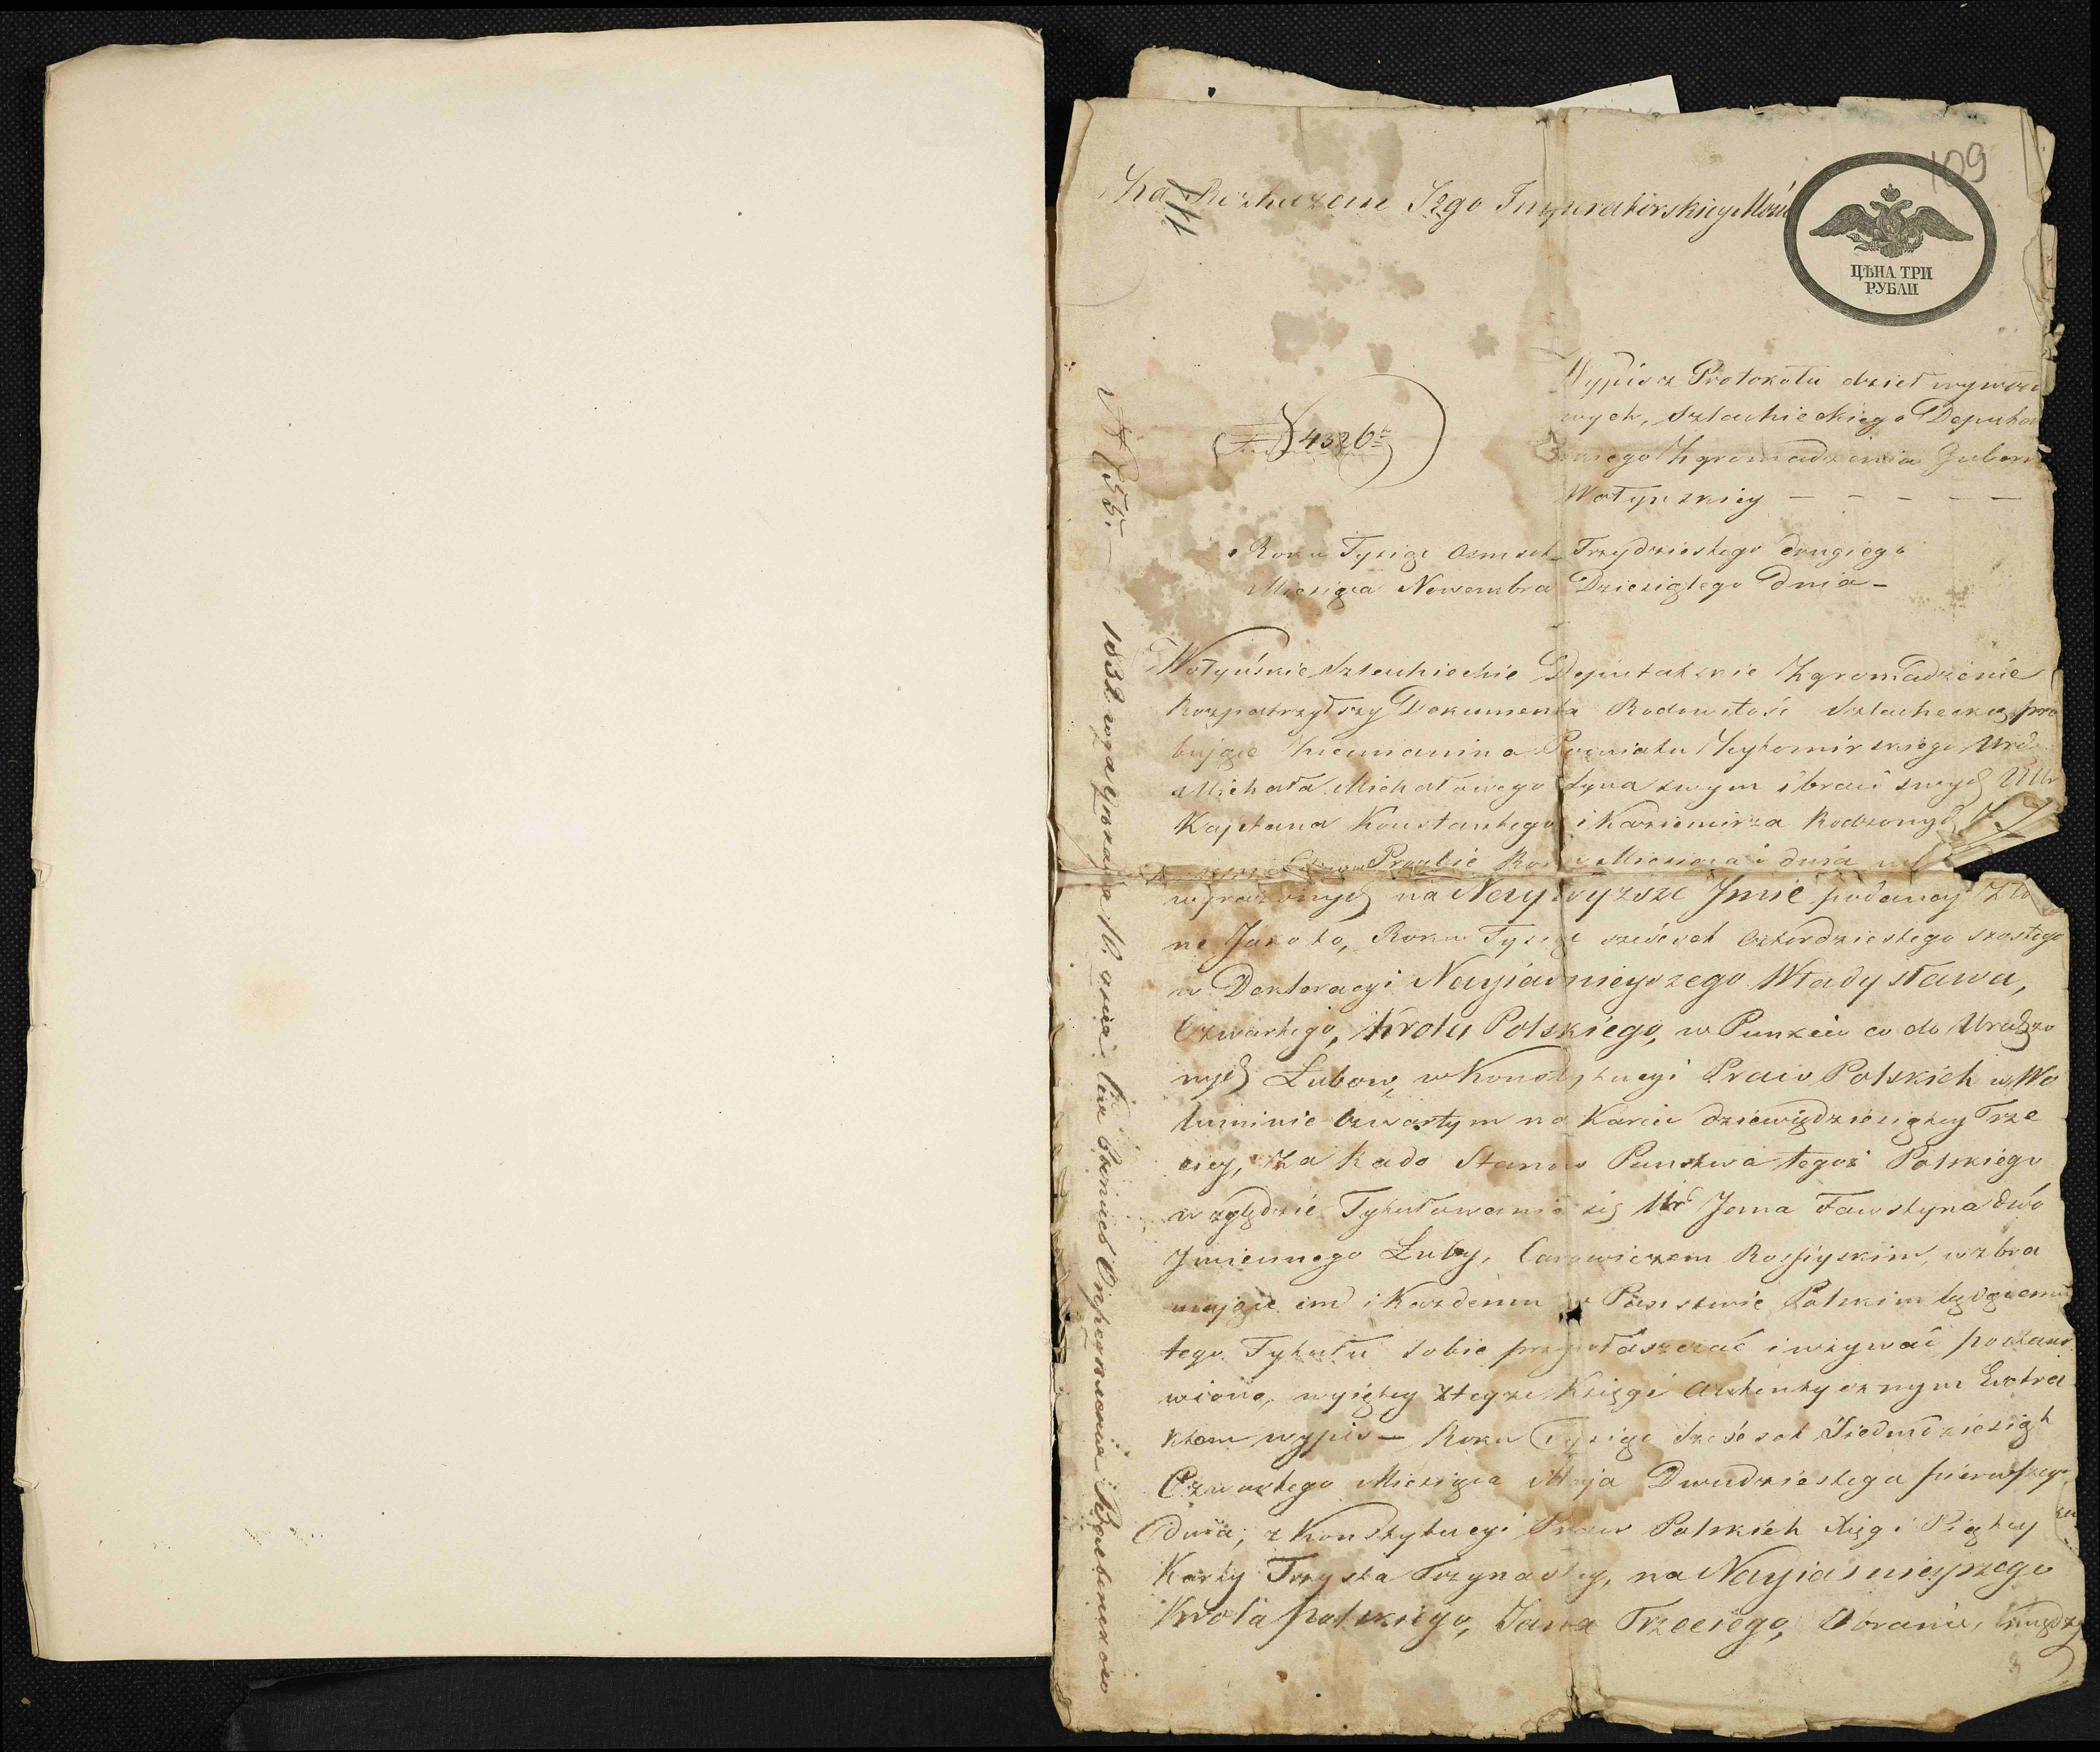 109
Na Rozkazanie Jego Imperatorskiey Mości
ЦѢНА ТРИ
РУБЛИ
Wypis z Protokołu dzieł wywodo
wych, Szlacheckiego Deputa
Zgromadzenia Gubern
Wołyńskiey — — — — —
4326
Roku Tysiąc Osmset Trzydziestego drugiego
Miesiąca Nowembra Dziesiątego Dnia —
Wołyńskie Szlacheckie Deputatskie Zgromadzenie
Rozpatrzyłszy Dokumenta Rodowitość Szlachecką pro
bujące Ziemianina Powiatu Żytomirskiego Uro
Michała Michałowego syna swym i braci swych UUr
Kajetana Konstantego i Kazimirza Rodzonych
Prozbie Miesiąca i dnia
wyrażonych na Naywyzsze Jmie podaney zło
ne Jako to, Roku Tysiąc sześćset czterdziestego szostego
w Deklaracyi Nayiasnieyszego Władysława,
Czwartego, Krola Polskiego, w Punkcie co do Urodzo
nych Łubow, w Konstytucyi Praw Polskich w Wo
luminie czwartym na Karcie dziewiędziesiątey Trze
ciey, Za Stanow Panstwa tegoż Polskiego
względzie Tytułowania się Ur Jana Faustyna dwo
Jmiennego Łuby, Carowiczem Rossyiskim, wzbra
niające im i Kazdemu w Panstwie Polskim będącemu
tego Tytułu sobie przywłaszczać i używać postano
wiono, wyiętey z teyze Księgi autentycznym Extra
ktem wypis — Roku Tysiąc sześćset Siedmdziesiąt
Czwartego Miesiąca Maja Dwudziestego pierwszego
dnia, z Konstytucyi Praw Polskich Xięgi Piątey
Karty Trzysta Trzynastey, na Nayiasnieyszego
Krola polskiego, Jana Trzeciego, Obranie, między
1832 года 16 дня